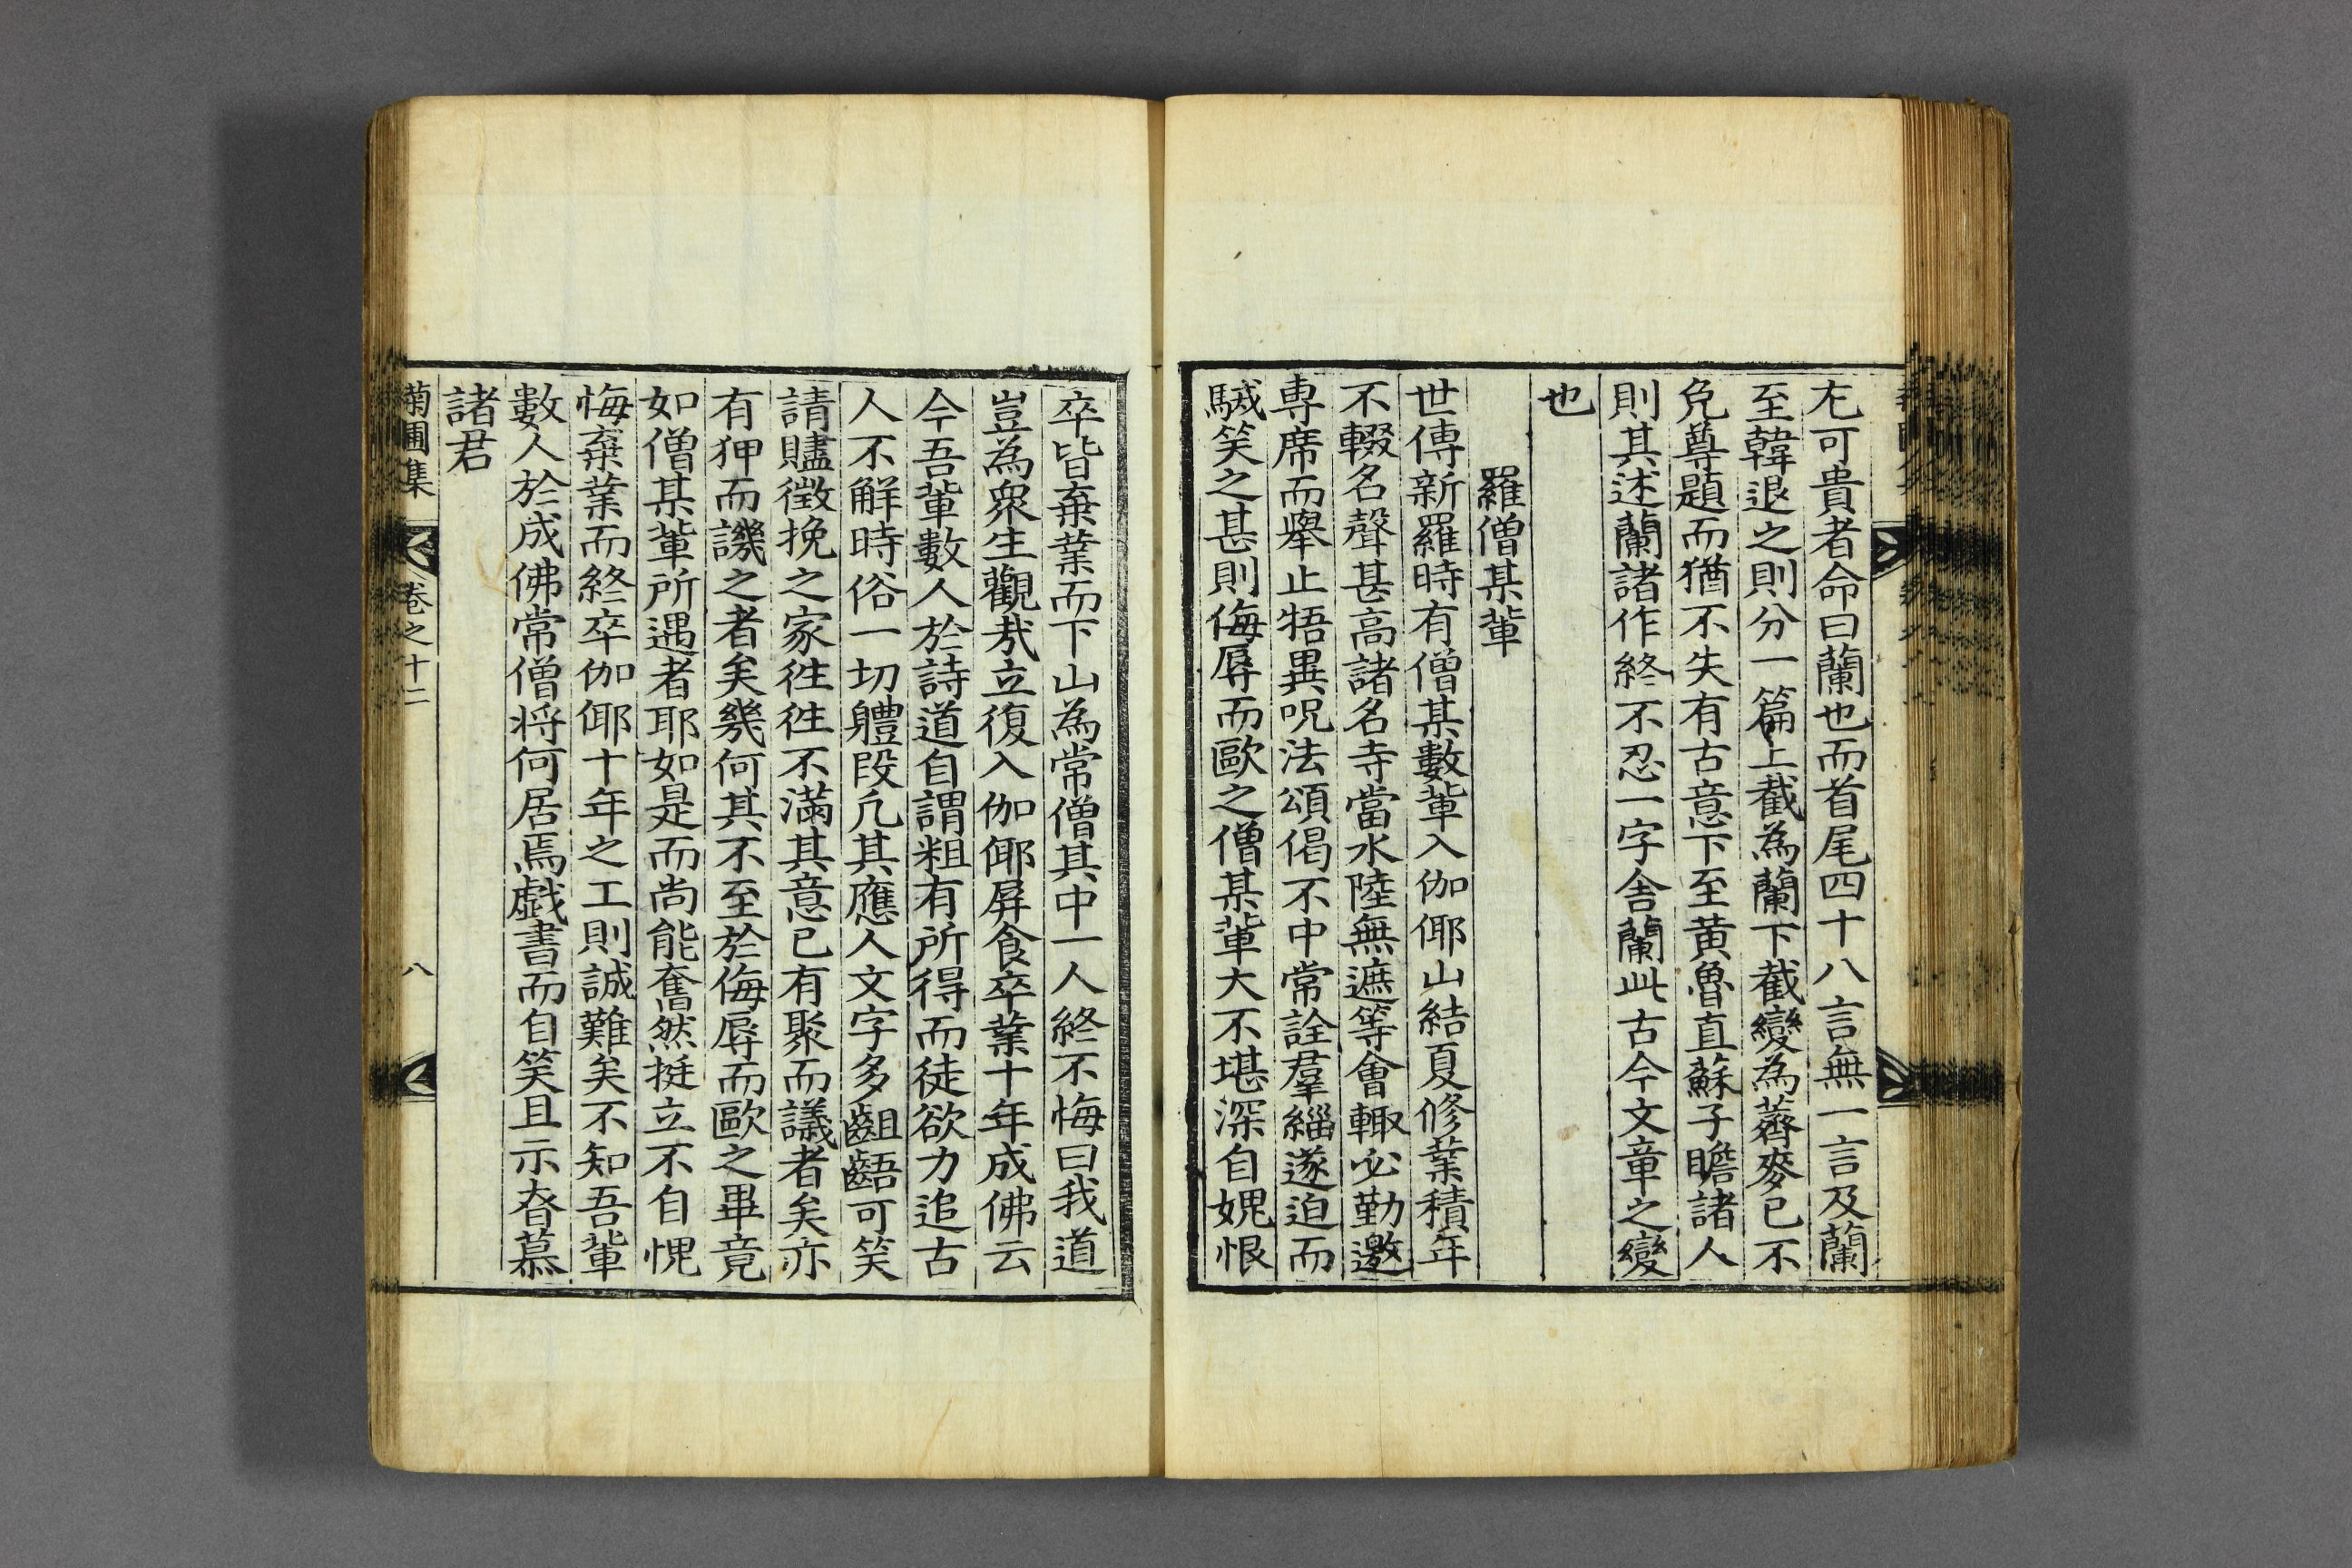 尤可貴者命曰蘭也而首尾四十八言無一言及蘭
至韓退之則分一篇上截為蘭下截變為薺麥已不
免尊題而猶不失有古意下至黃魯直蘇子瞻諸人
則其述蘭諸作終不忍一字舍蘭此古今文章之變
也
羅僧某軰
世傳新羅時有僧某數軰入伽倻山結夏修業積年
不輟名聲甚高諸名寺當水陸無遮等會輙必勤邀
專席而擧止牾異呪法頌偈不中常詮羣緇遂迫而
駴笑之甚則侮辱而歐之僧某軰大不堪深自媿恨
卒皆棄業而下山為常僧其中一人終不悔曰我道
豈為衆生觀㢤立復入伽倻屏食卒業十年成佛云
今吾軰數人於詩道自謂粗有所得而徒欲力追古
人不觧時俗一切軆段凢其應人文字多齟齬可笑
請贐徵挽之家徃徃不滿其意已有聚而議者矣亦
有狎而譏之者矣幾何其不至於侮辱而歐之畢竟
如僧某軰所遇者耶如是而尚能奮然挺立不自愧
悔棄業而終卒伽倻十年之工則誠難矣不知吾軰
數人於成佛常僧将何居焉戯書而自笑且示杳慕
諸君
菊圃集 卷之十二 八